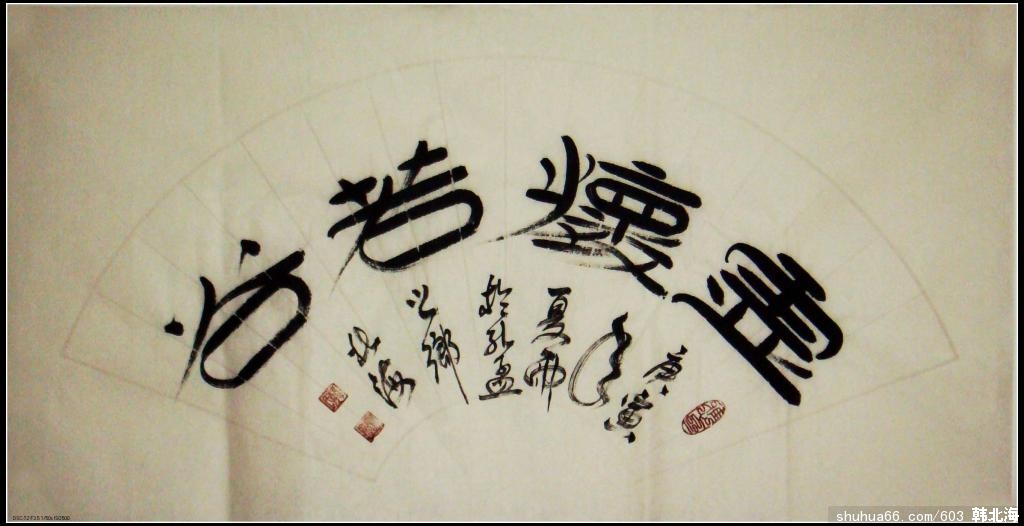 虚懷若谷
庚寅
年
夏雨
於孔孟
之鄉
北海
shuhua66.com/603 韩北海